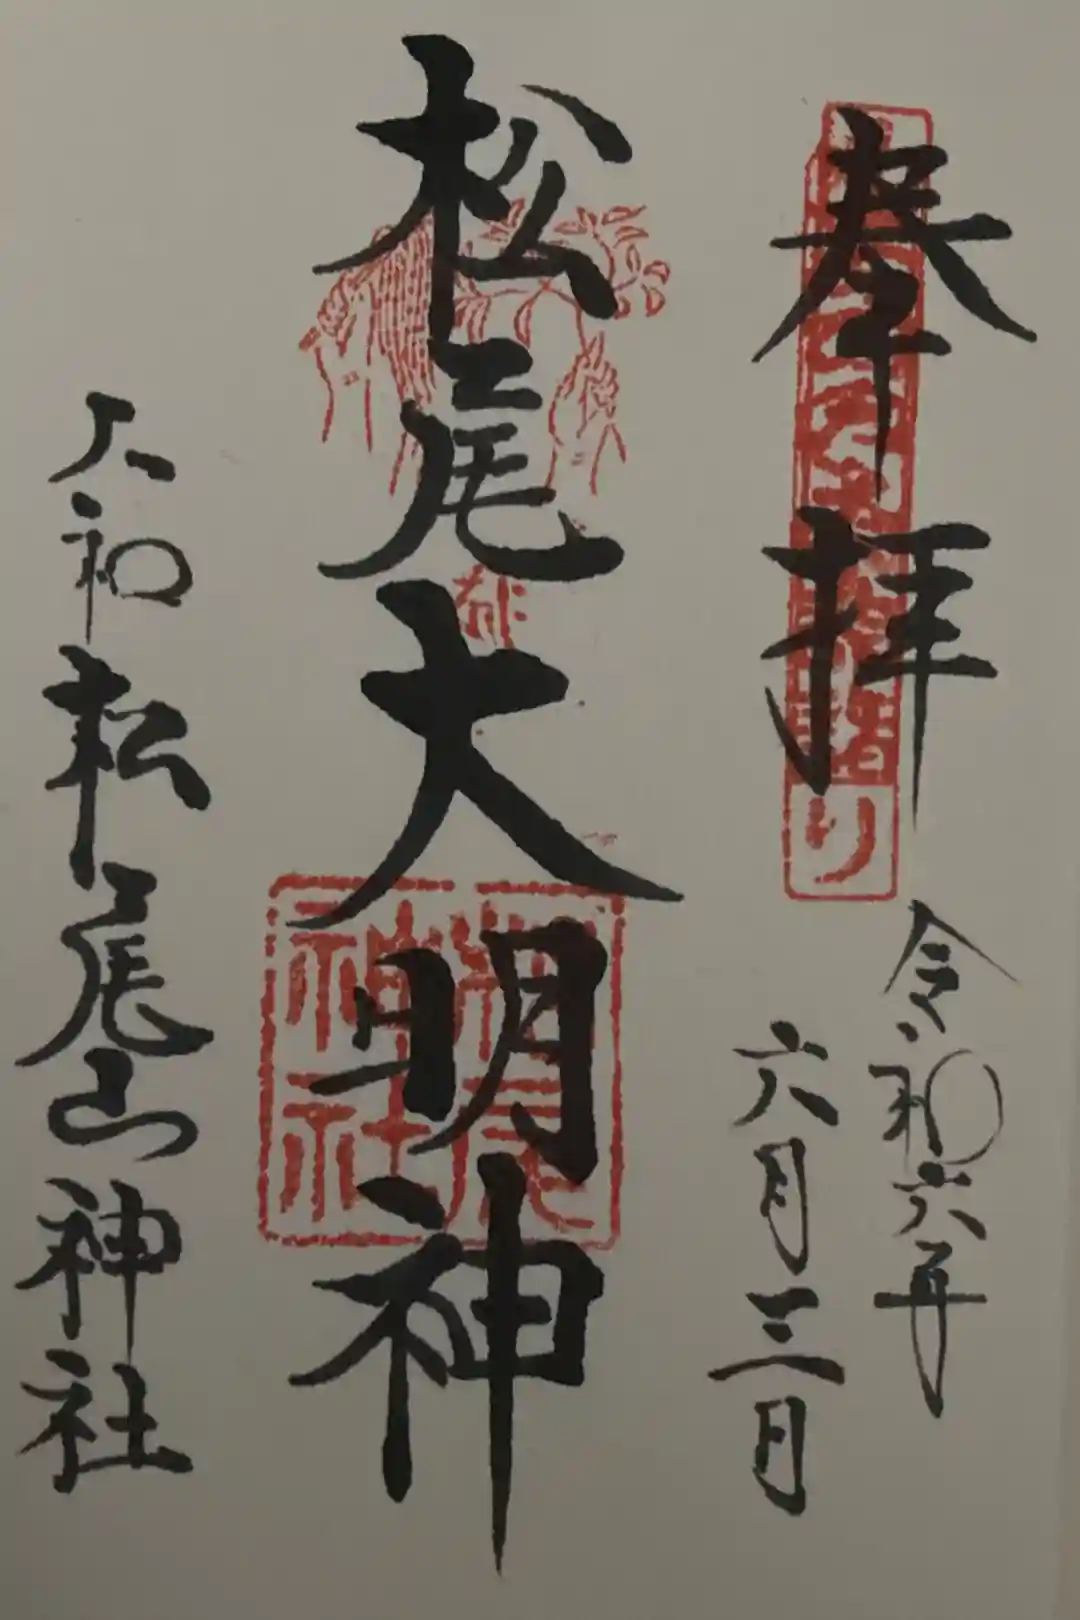 奉拝
令和六年
六月三日
松尾大明神
大和松尾山神社
り
神社